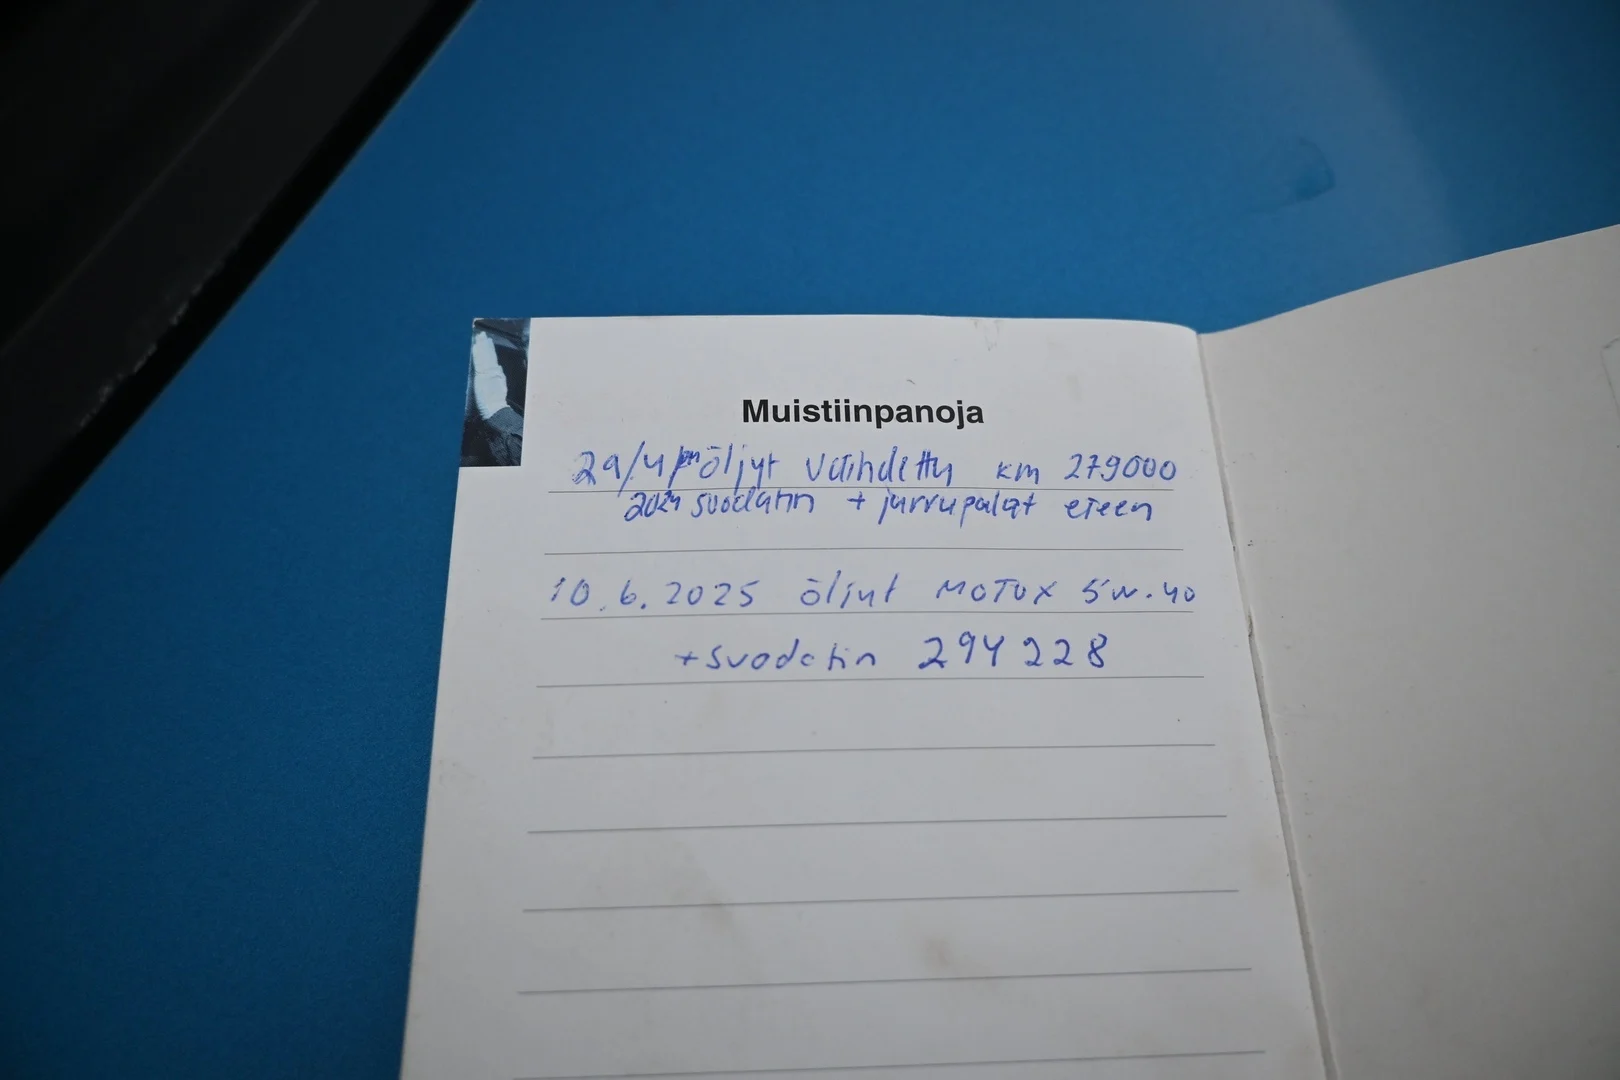 Muistiinpanoja
29/4 öljyt vaihdettu km 279000
2024 suodatin + jarrupalat eteen
10.6.2025 öljyt MOTUX 5W.40
+suodatin 294 228